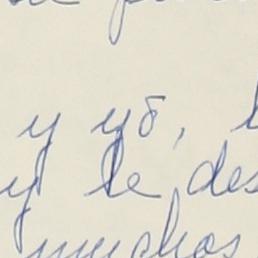 y yō,
y le des
muchos